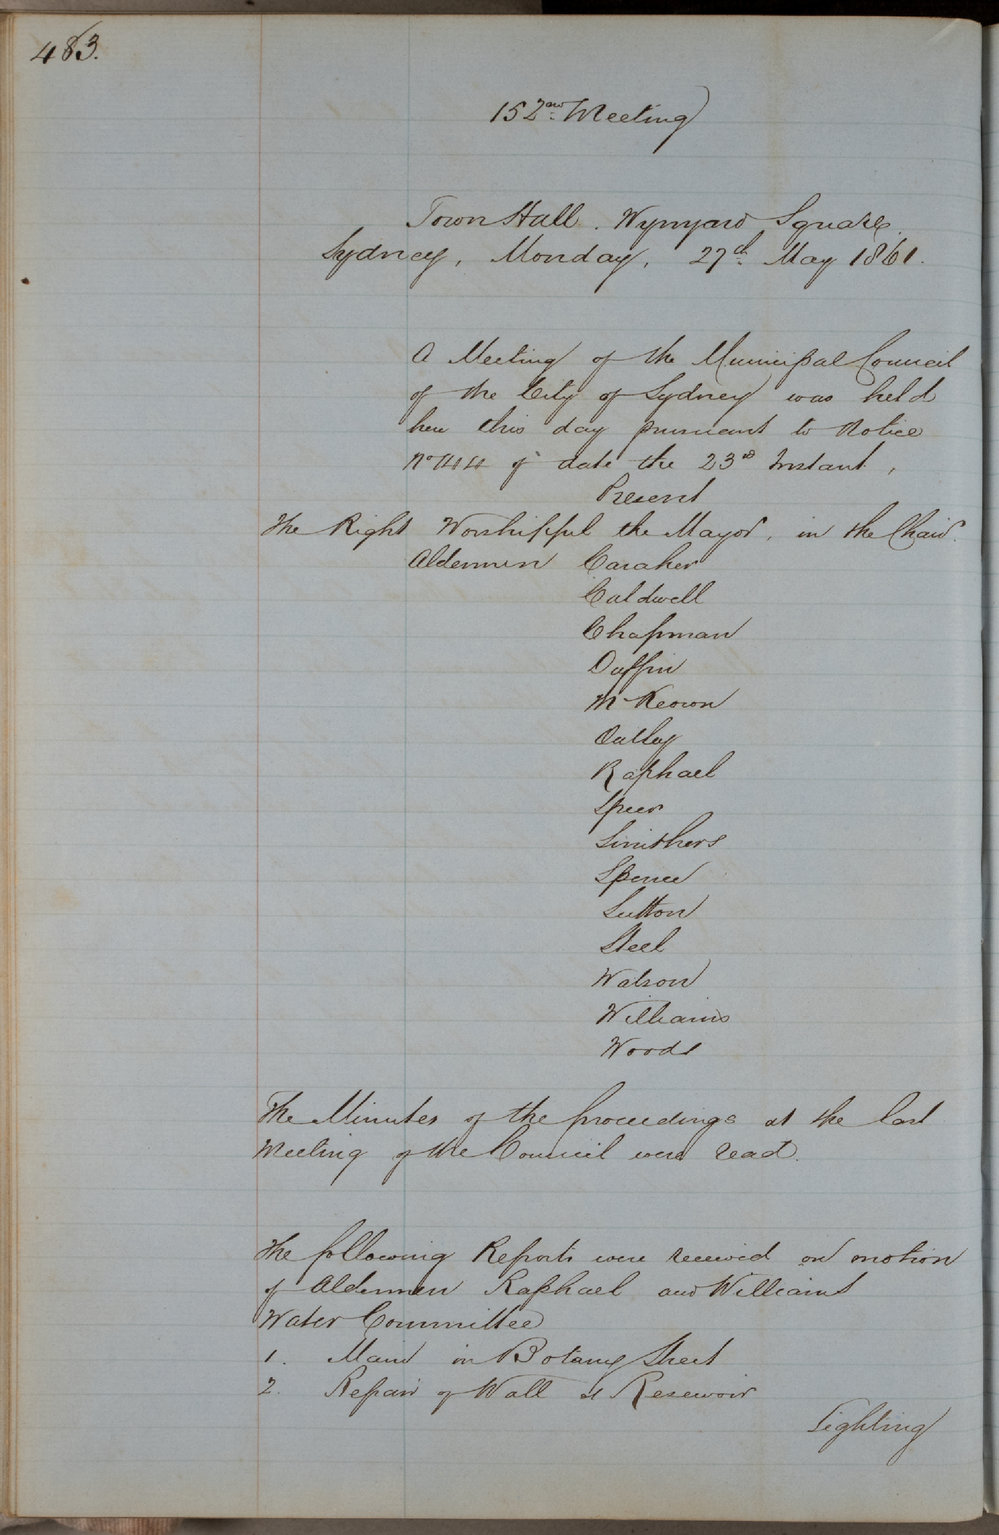 483.
152nd Meeting
Town Hall. Wynyard Square.
Sydney, Monday, 27th May 1861.
A Meeting of the Municipal Council
of the City of Sydney was held
here this day pursuant to Notice
No of date the 23rd Instant.
Present
The Right Worshipful the Mayor, in the Chair.
Aldermen Caraher
Caldwell
Chapman
Daffin
McKeown
Oatley
Raphael
Speer
Smithers
Spence
Sutton
Steel
Watson
Williams
Woods
The Minutes of the proceedings at the last
Meeting of the Council were read.
The following Reports were received on motion
of Aldermen Raphael and Williams
Water Committee
1. Main in Botany Street
2. Repair of Wall at Resevoir
Lighting